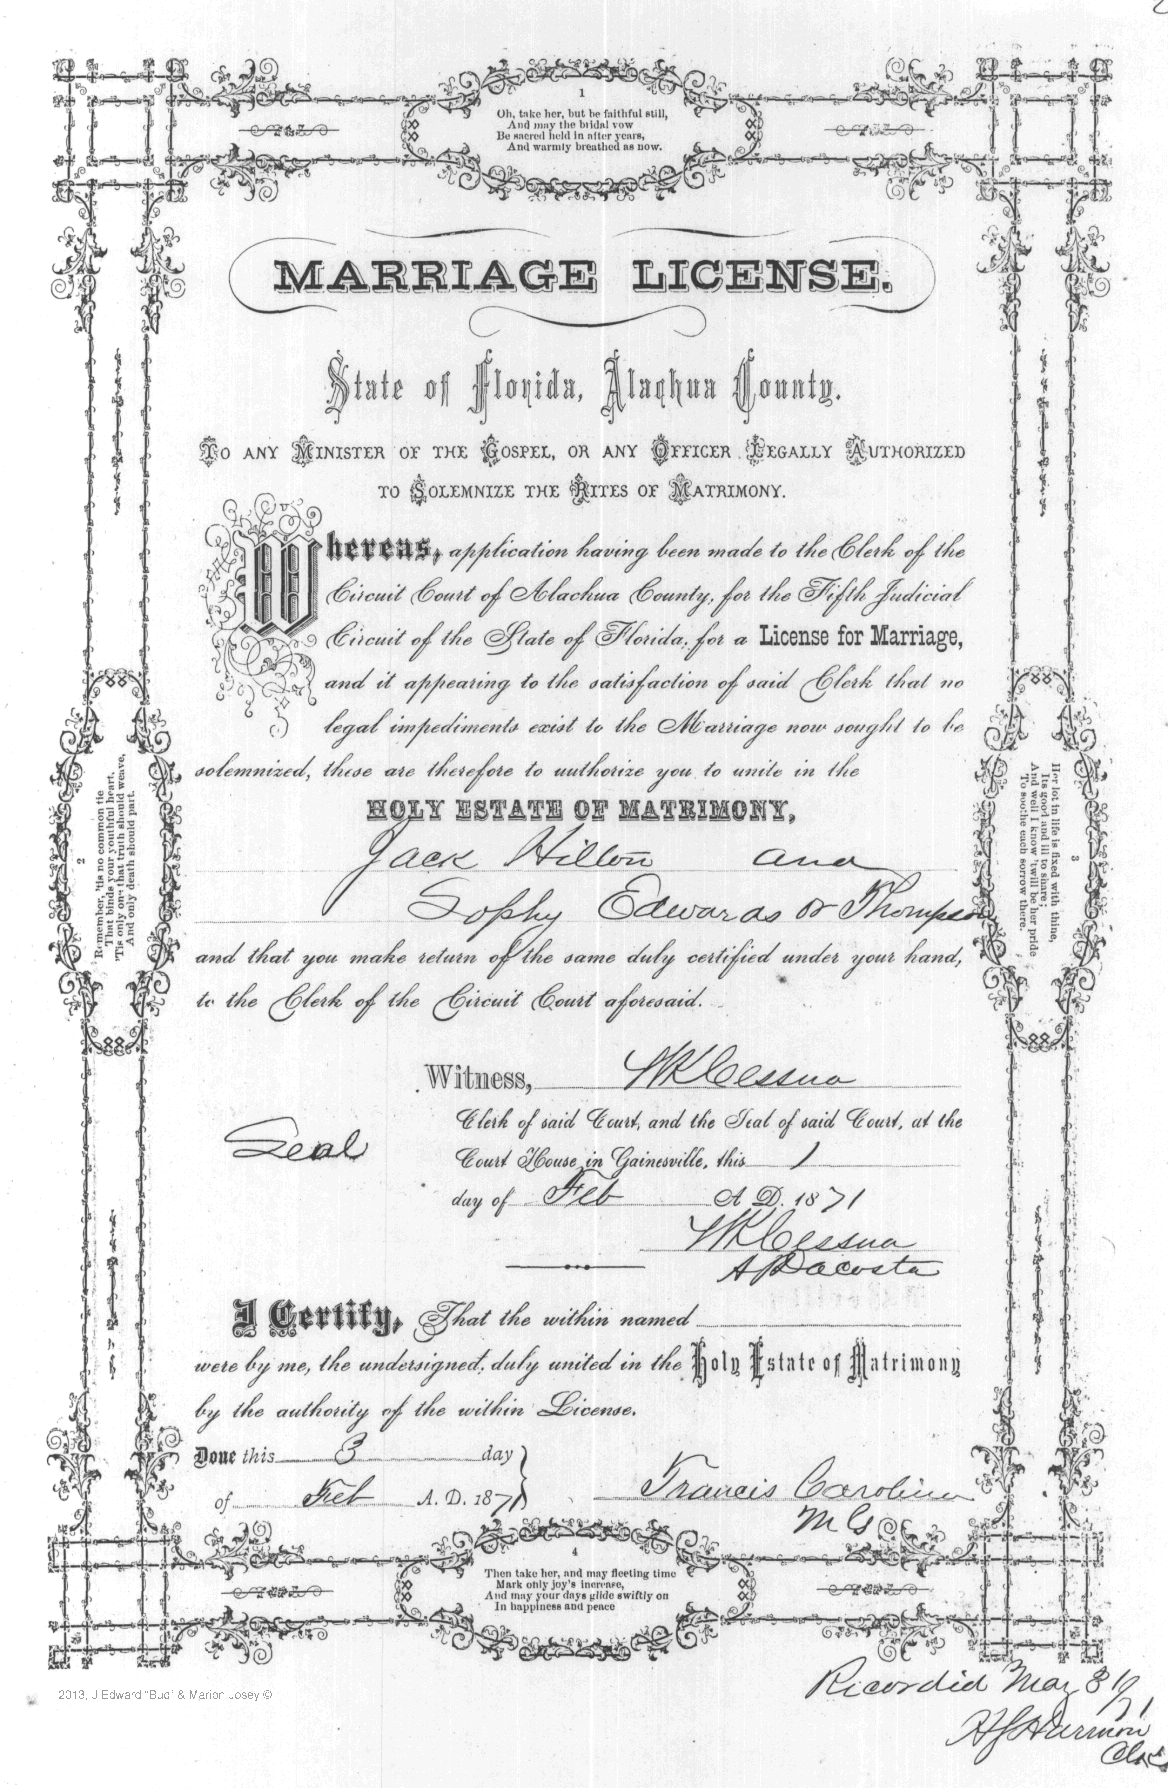 1
Oh, take her, but be faithful still,
And may the bridal vow
Be sacred held in after years,
And warmly breathed as now.
MARRIAGE LICENSE.
State of Florida, Alachua County.
To any Minister of the Gospel, or any Officer Legally Authorized
to Solemnize the Rites of Matrimony.
Whereas, application having been made to the Clerk of the
Circuit Court of Alachua County, for the Fifth Judicial
Circuit of the State of Florida, for a License for Marriage,
and it appearing to the satisfaction of said Clerk that no
legal impediments exist to the Marriage now sought to be
solemnized, these are therefore to authorize you to unite in the
HOLY ESTATE OF MATRIMONY,
Jack Hilton and
Sophy Edwards or Thompson
and that you make return of the same duly certified under your hand,
to the Clerk of the Circuit Court aforesaid.
2
Remember, 'tis no common tie
That binds your youthful heart,
'Tis only one that truth should weave,
And only death should part.
3
Her lot in life is fixed with thine,
Its good and ill to share;
And well I know 'twill be her pride
To soothe each sorrow there.
Witness, WK Cessna
Clerk of said Court, and the Seal of said Court, at the
Seal
Court House in Gainesville, this 1
day of Feb A. D. 1871
WK Cessna
A Dacosta
I Certify, That the within named
were by me, the undersigned, duly united in the Holy Estate of Matrimony
by the authority of the within License.
Done this 3 day
of Feb A. D. 1871
Francis Carolina
M G
4
Then take her, and may fleeting time
Mark only joy's increase,
And may your days glide swiftly on
In happiness and peace
2013, J Edward "Bud" & Marion Josey ©
Recordid May
Harmon
Clk